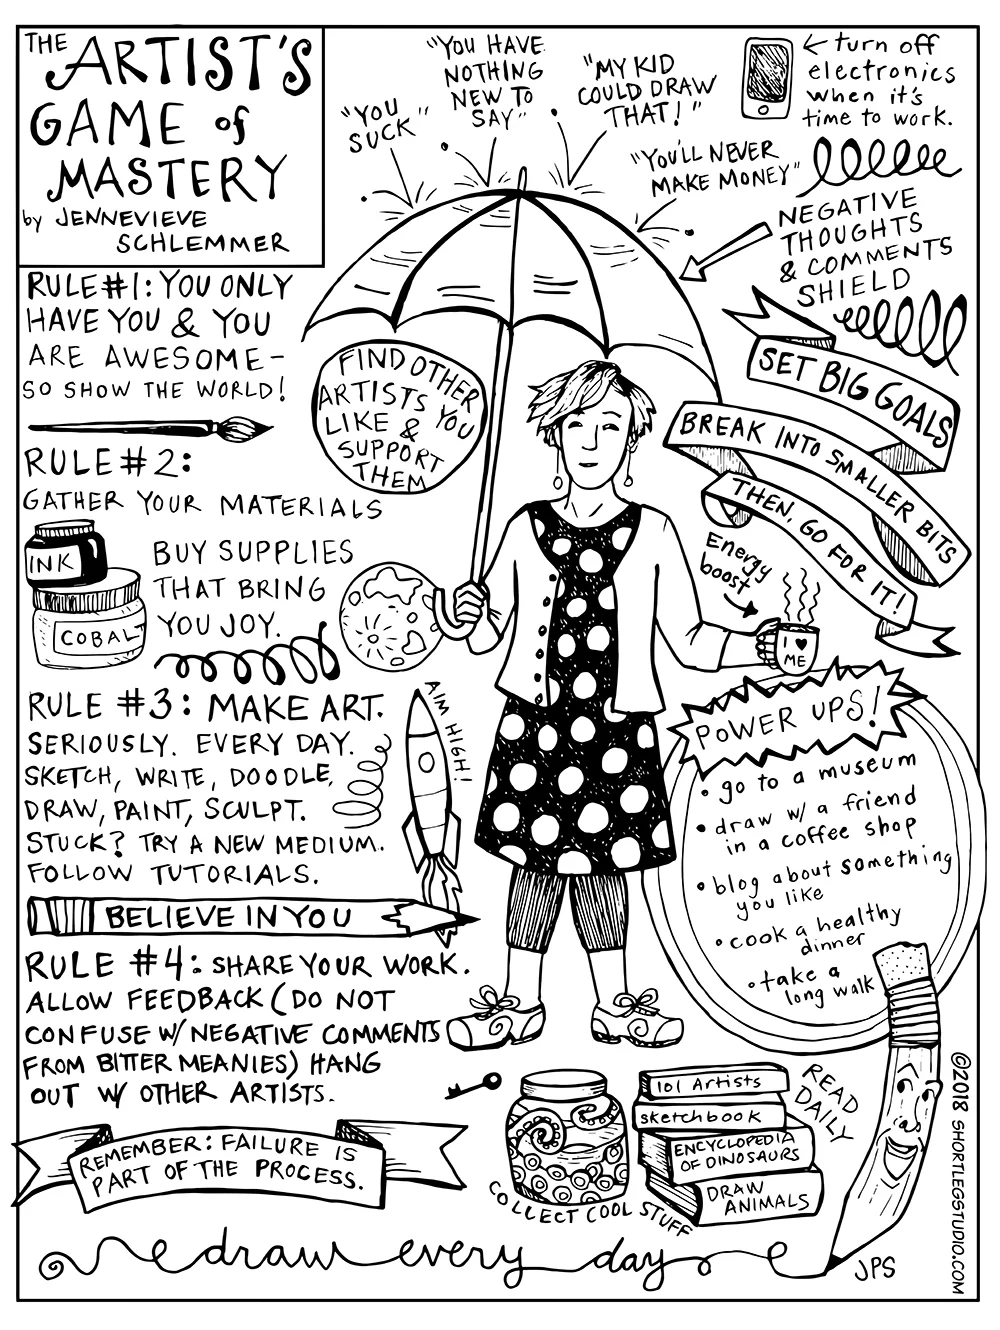 THE ARTIST'S
GAME of
MASTERY
by JENNEVIEVE
SCHLEMMER
"YOU
SUCK"
"YOU HAVE
NOTHING
NEW TO
SAY"
"MY KID
COULD DRAW
THAT!"
"YOU'LL NEVER
MAKE MONEY"
turn off
electronics
when it's
time to work.
NEGATIVE
THOUGHTS
& COMMENTS
SHIELD
RULE #1: YOU ONLY
HAVE YOU & YOU
ARE AWESOME-
SO SHOW THE WORLD!
FIND OTHER
ARTISTS YOU
LIKE &
SUPPORT
THEM
SET BIG GOALS
BREAK INTO SMALLER BITS
THEN, GO FOR IT!
RULE #2:
GATHER YOUR MATERIALS
INK
COBALT
BUY SUPPLIES
THAT BRING
YOU JOY.
Energy
boost
I ♥
ME
RULE #3: MAKE ART.
SERIOUSLY. EVERY DAY.
SKETCH, WRITE, DOODLE,
DRAW, PAINT, SCULPT.
STUCK? TRY A NEW MEDIUM.
FOLLOW TUTORIALS.
AIM HIGH!
BELIEVE IN YOU
POWER UPS!
• go to a museum
• draw w/ a friend
in a coffee shop
• blog about something
you like
• cook a healthy
dinner
• take a
long walk
RULE #4: SHARE YOUR WORK.
ALLOW FEEDBACK (DO NOT
CONFUSE W/ NEGATIVE COMMENTS
FROM BITTER MEANIES) HANG
OUT W/ OTHER ARTISTS.
REMEMBER: FAILURE IS
PART OF THE PROCESS.
COLLECT COOL STUFF
101 Artists
sketchbook
ENCYCLOPEDIA
OF DINOSAURS
DRAW
ANIMALS
READ
DAILY
draw every day
JPS
©2018 SHORTLEGSTUDIO.COM